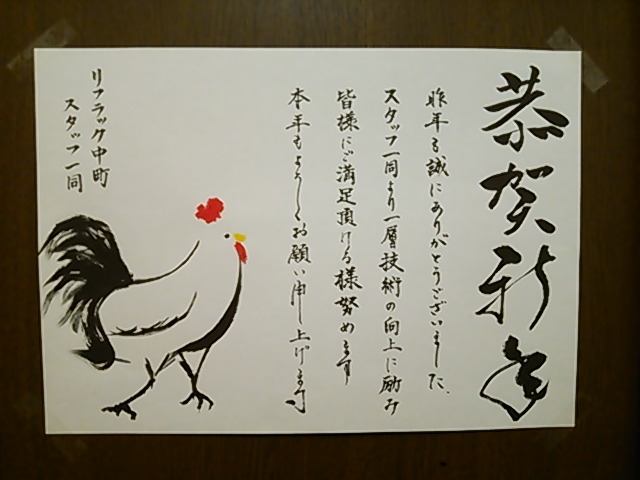 恭賀新年
昨年も誠にありがとうございました、
スタッフ一同より一層技術の向上に励み
皆様にご満足頂ける様努めます
本年もよろしくお願い申し上げます
リフラック中町
スタッフ一同